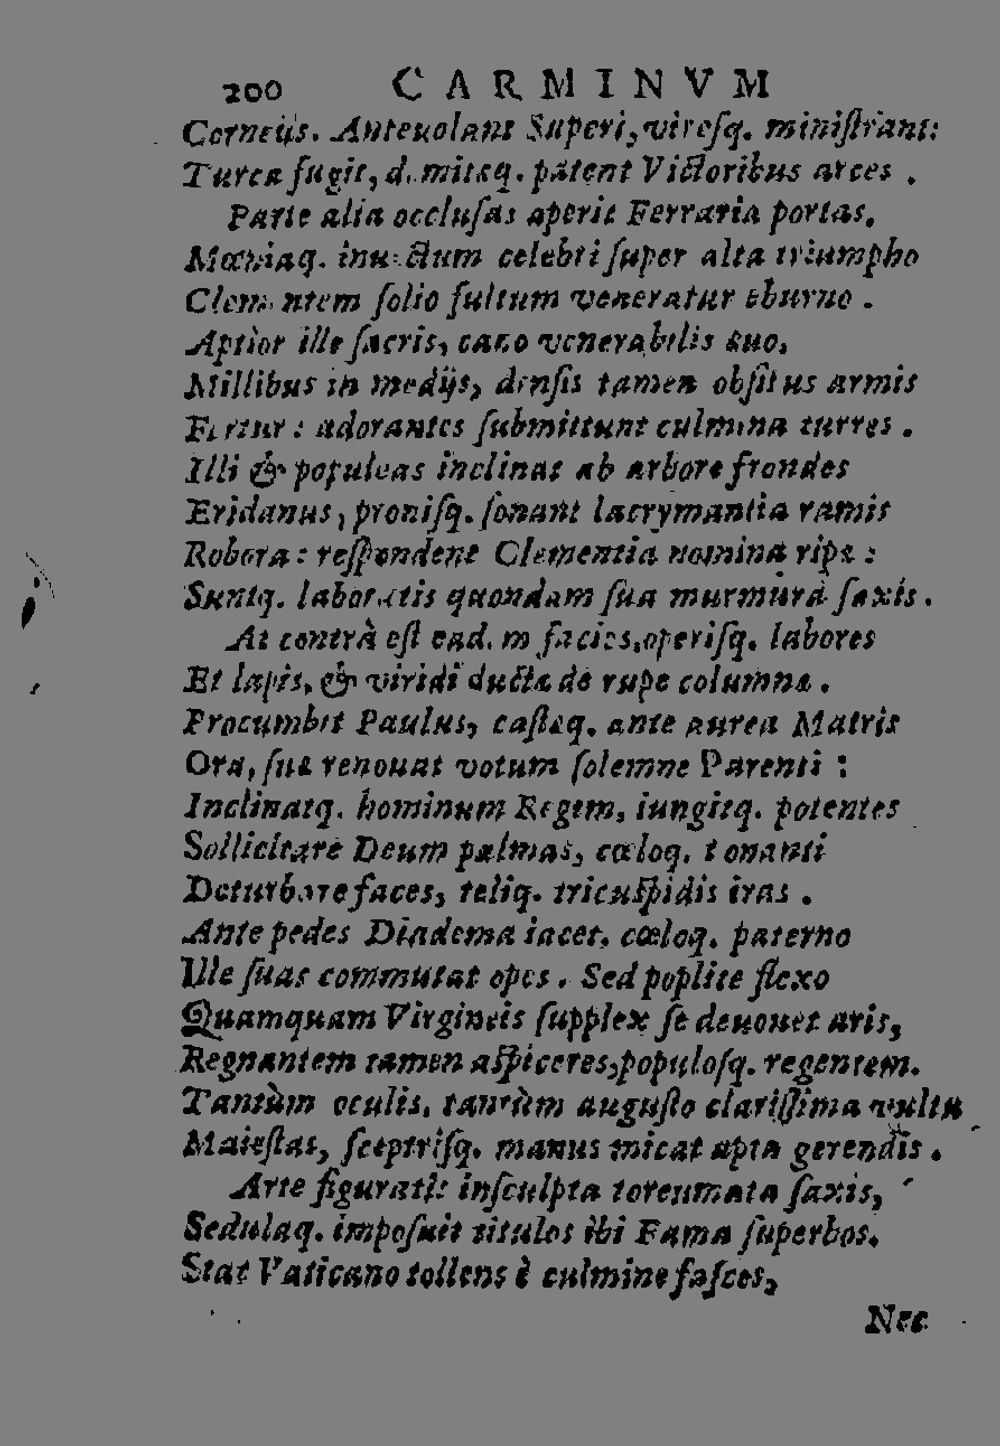 200 CARMINVM
Corneijs. Anteuolant Superi, viresq. miniſtrant:
Turca fugit, domitæq. patent Victoribus arces .
Parte alia occluſas aperit Ferraria portas,
Mœniaq. inuectum celebri ſuper alta triumpho
Clementem ſolio fultum veneratur eburno .
Aptior ille ſacris, cano venerabilis æuo,
Millibus in medijs, denſis tamen obſitus armis
Fertur : adorantes ſubmittunt culmina turres .
Illi & populeas inclinat ab arbore frondes
Eridanus, proniſq. ſonant lacrymantia ramis
Robora : reſpondent Clementia nomina ripæ :
Suntq. laboratis quondam ſua murmura ſaxis .
At contrà eſt eadem facies, operiſq. labores
Et lapis, & viridi ductæ de rupe columnæ .
Procumbit Paulus, caſtæq. ante aurea Matris
Ora, ſuæ renouat votum ſolemne Parenti :
Inclinatq. hominum Regem, iungitq. potentes
Sollicitare Deum palmas, cœloq. tonanti
Deturbare faces, teliq. tricuſpidis iras .
Ante pedes Diadema iacet, cœloq. paterno
Ille ſuas commutat opes . Sed poplite flexo
Quamquam Virgineis ſupplex ſe deuouet aris,
Regnantem tamen aſpiceres, populoſq. regentem.
Tantùm oculis, tantùm auguſto clariſſima vultu
Maieſtas, ſceptriſq. manus micat apta gerendis .
Arte figuratis inſculpta toreumata ſaxis,
Sedulaq. impoſuit titulos ibi Fama ſuperbos.
Stat Vaticano tollens è culmine faſces,
Nec